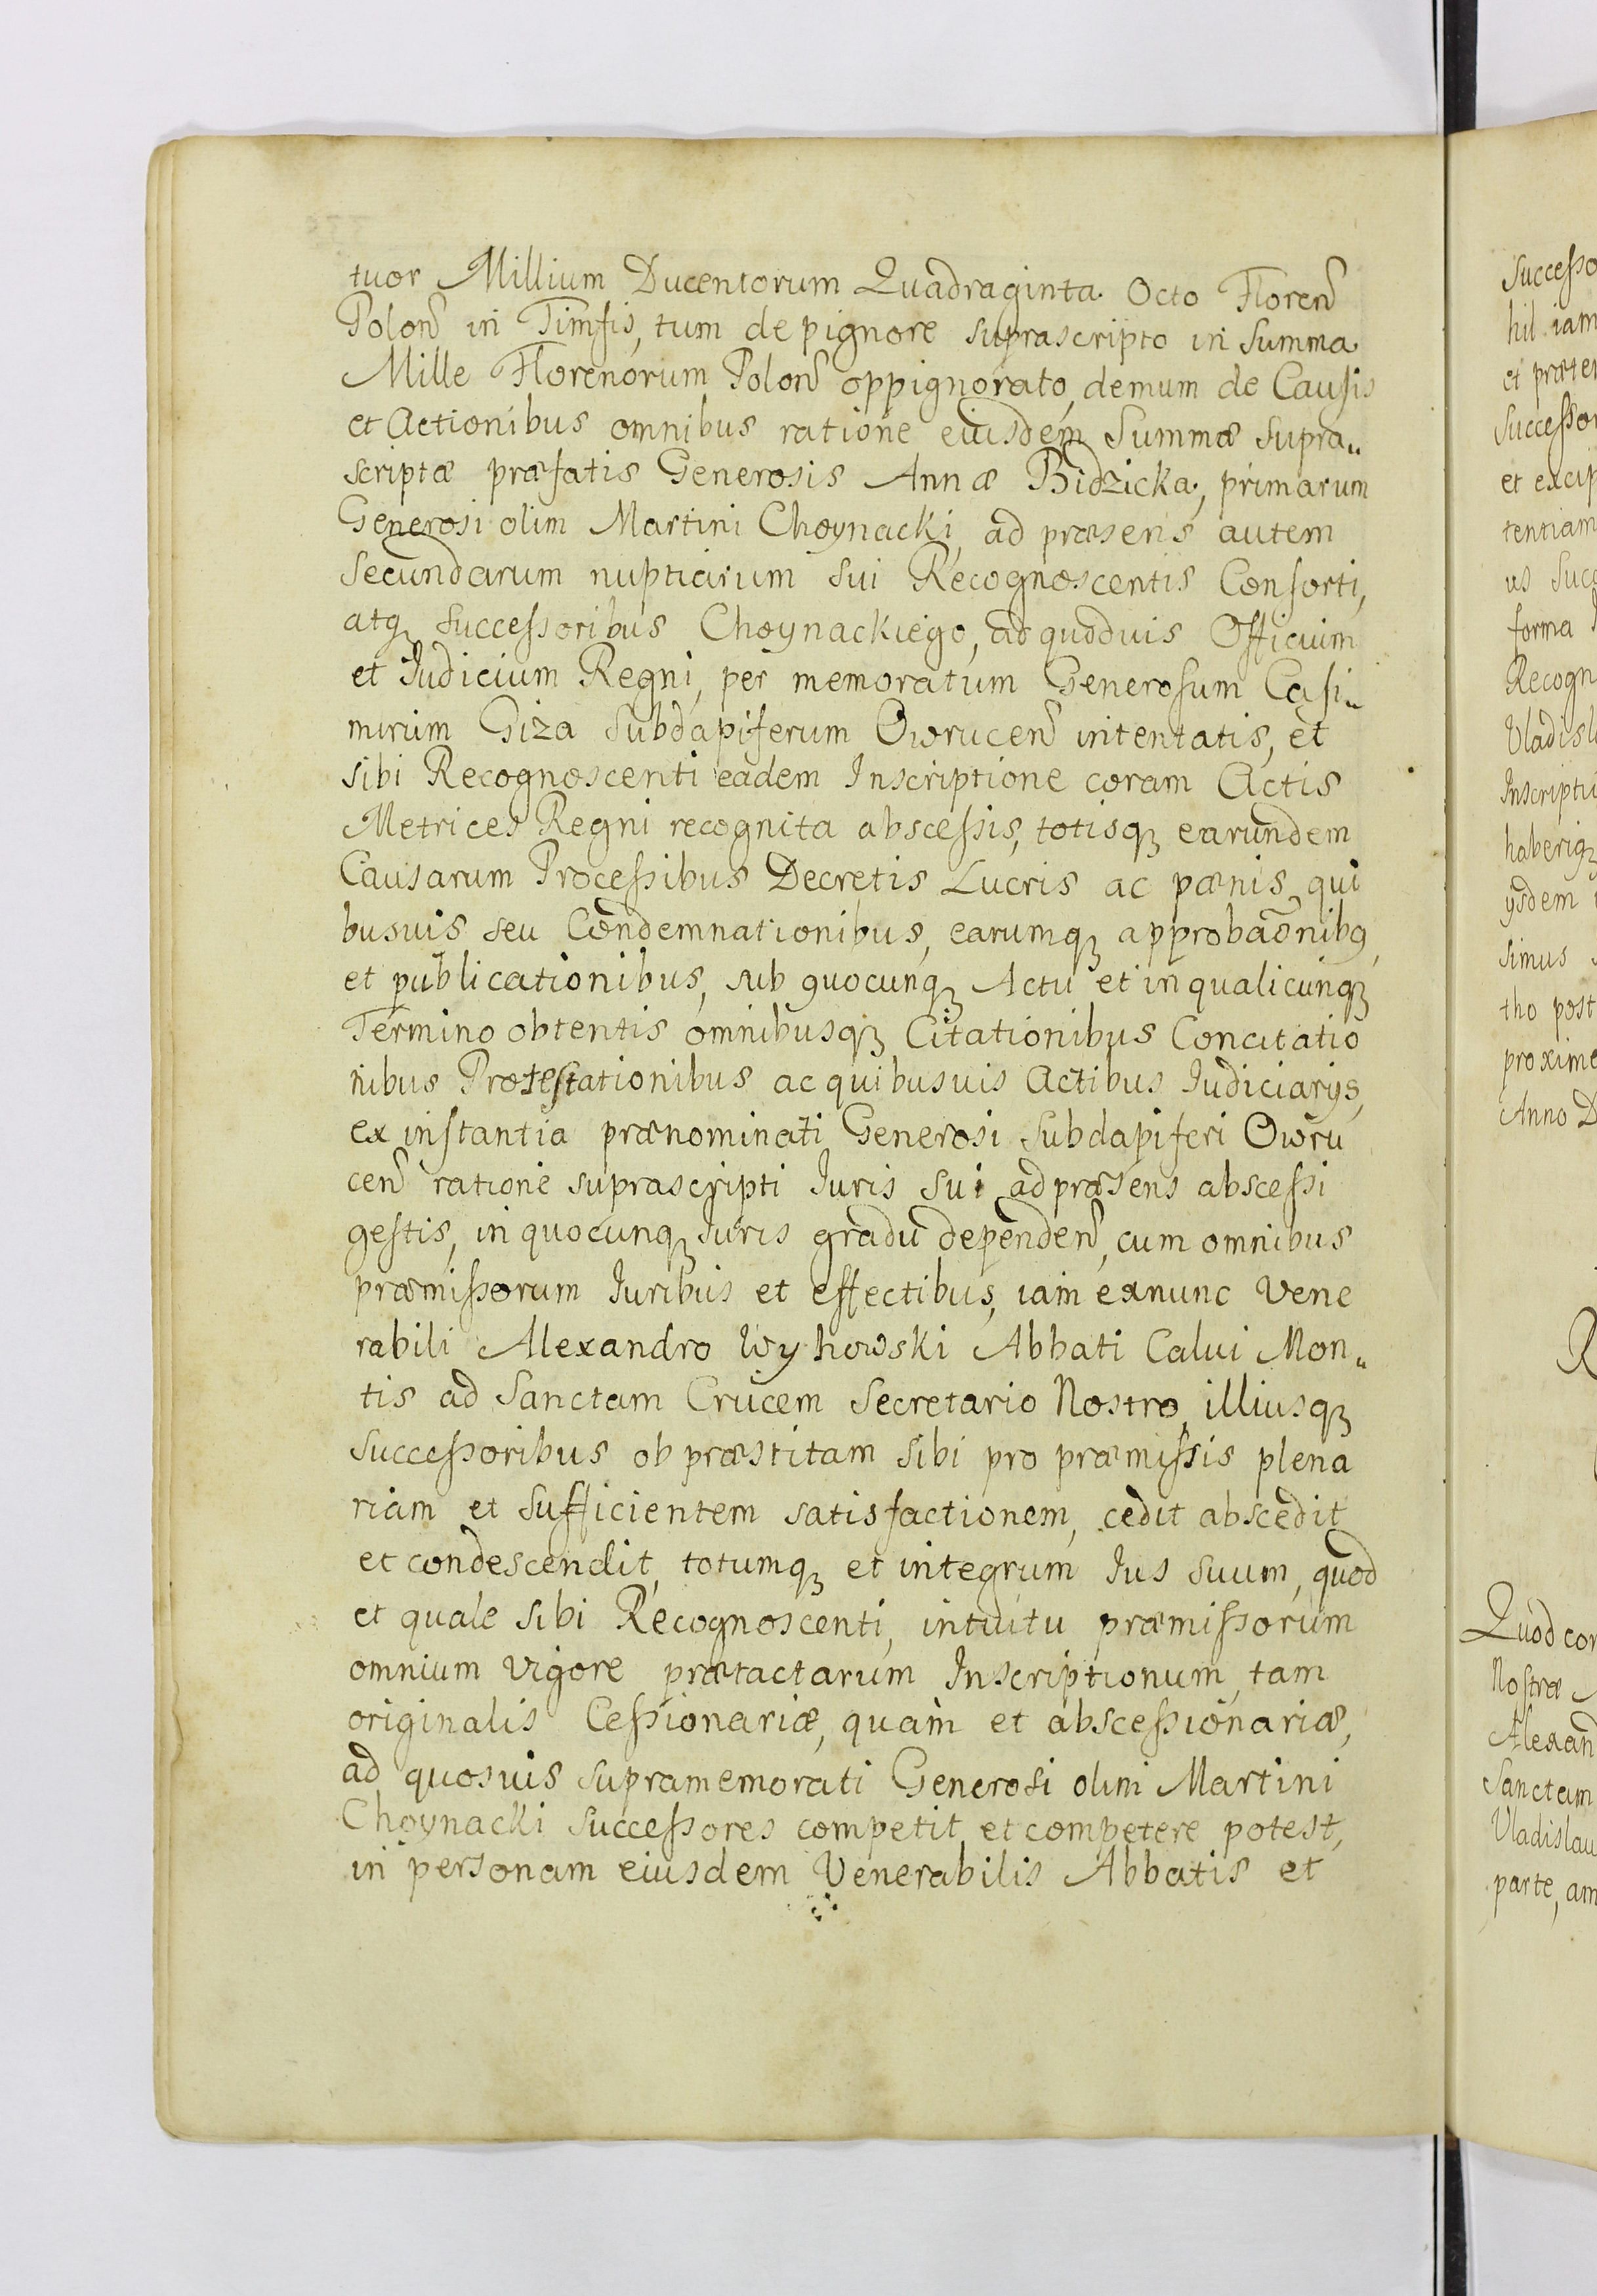 tuor Millium Ducentorum Quadraginta Octo Floren
Polon in Timfis, tum de pignore suprascripto in Summa
Mille Florenorum Polon oppignorato, demum de Causis
et Actionibus omnibus ratione eiusdem Summæ Supra„
scriptæ præfatis Generosis Annæ Bidzicka, primarum
Generosi olim Martini Choynacki, ad præsens autem
Secundarum nuptiarum Sui Recognoscentis Consorti,
atq successoribus Choynackiego, ad quoduis Officium
et Iudicium Regni, per memoratum Generosum Casi„
mirum Giza Subdapiferum Owrucen intentatis, et
sibi Recognoscenti eadem Inscriptione coram Actis
Metrices Regni recognita abscessis, totisq earundem
Causarum Processibus Decretis Lucris ac pœnis, qui
busuis seu Condemnationibus, earumq approbaõnibq,
et publicationibus, sub quocunq Actu et in qualicunq
Termino obtentis omnibusq Citationibus Concitatio
nibus Protestationibus ac quibusuis Actibus Iudiciarys,
ex instantia prænominati Generosi Subdapiferi Owru
cen ratione suprascripti Iuris Sui ad præsens abscessi
gestis, in quocunq Iuris gradu dependen, cum omnibus
præmissorum Iuribus et effectibus, iam exnunc Vene
rabili Alexandro Wyhowski Abbati Calui Mon„
tis ad Sanctam Crucem Secretario Nostro, illiusq
Successoribus ob præstitam Sibi pro præmissis plena
riam et Sufficientem satisfactionem, cedit abscedit
et condescendit, totumq et integrum Ius suum, quod
et quale sibi Recognoscenti, intuitu præmissorum
omnium vigore prætactarum Inscriptionum, tam
originalis Cessionariæ, quam et abscessionariæ,
ad quosuis supramemorati Generosi olim Martini
Choynacki Successores competit, et competere potest,
in personam eiusdem Venerabilis Abbatis et
Successo
hil iam
et præter
Successor
et excip
tentiam
us Succ
forma
Recogn
Vladisl
Inscripti
haberiq
ysdem
simus
tho post
proxime
Anno D
R
Quod cor
Nostræ
Alexan
Sanctam
Vladislau
parte, am